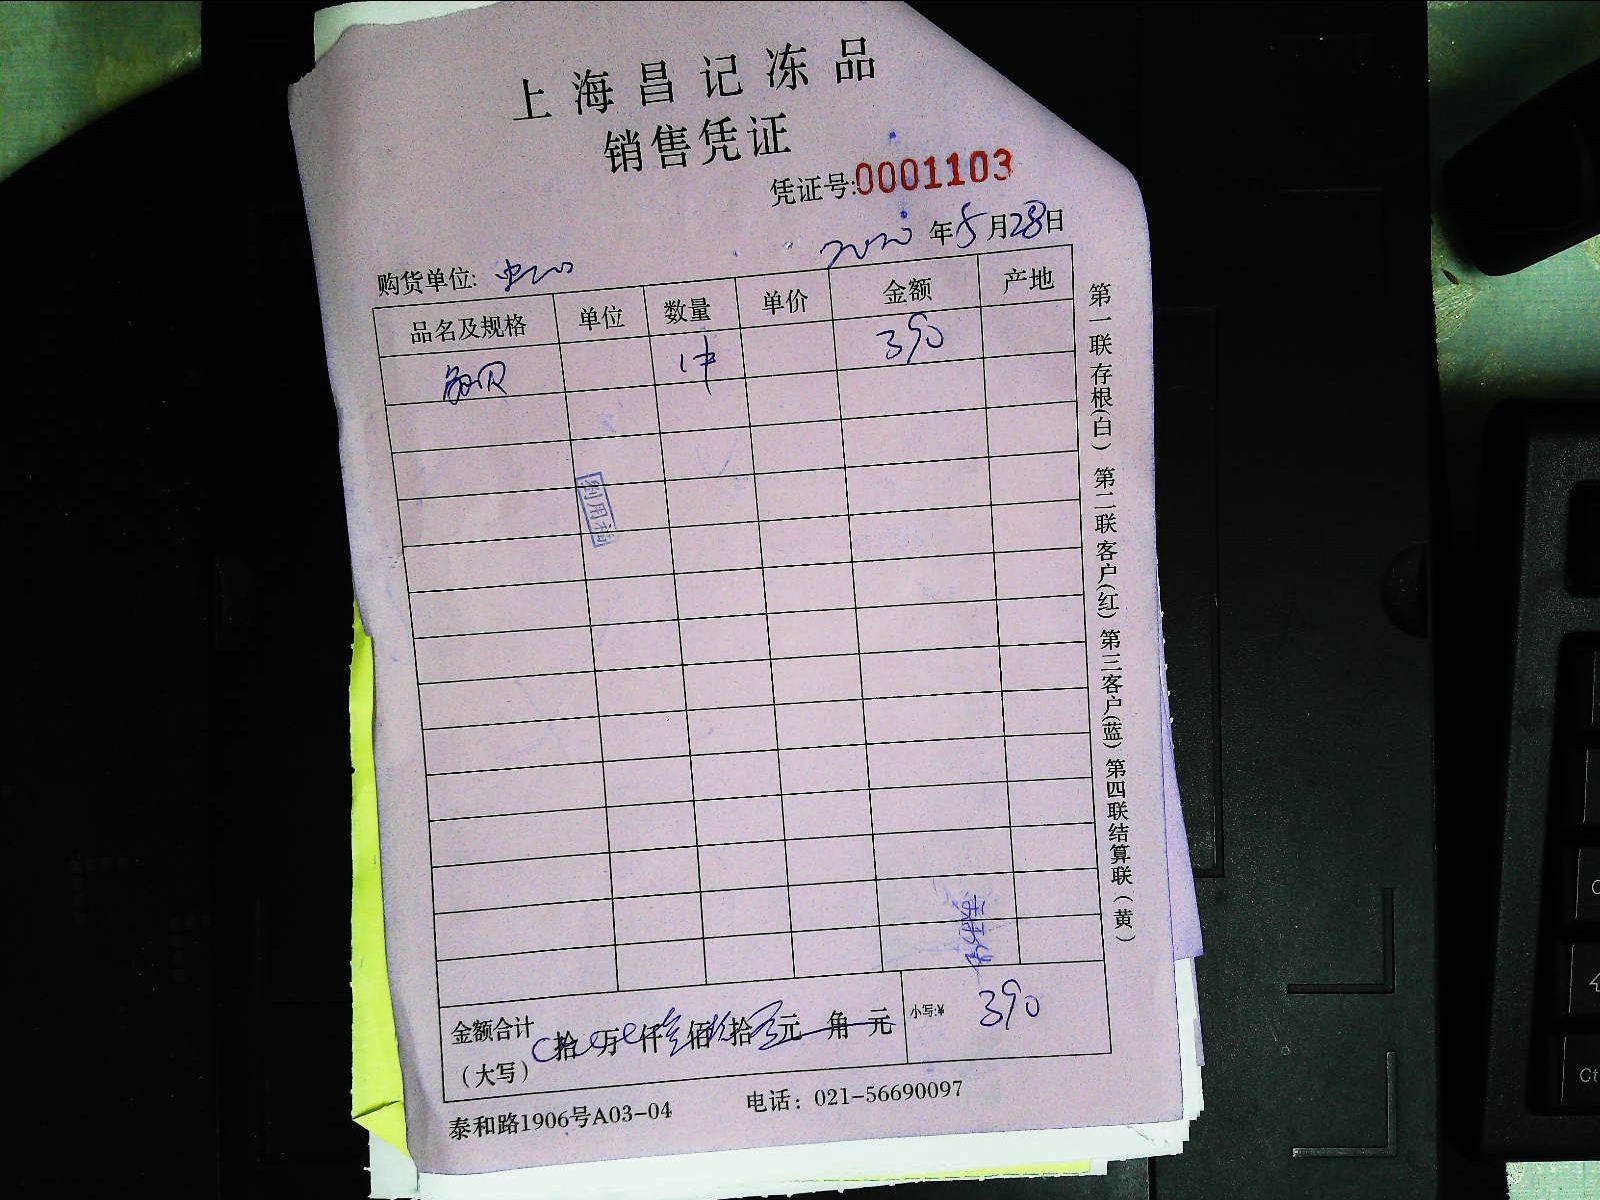 上海昌记冻品
销售凭证
凭证号:0001103
2020年5月28日
购货单位:
品名及规格 单位 数量 单价 金额 产地
鲍贝 1件 390
金额合计(大写) 拾 万 仟叁佰玖拾 元 角 元 小写:¥ 390
泰和路1906号A03-04 电话：021-56690097
第一联存根(白) 第二联客户(红) 第三客户(蓝) 第四联结算联(黄)